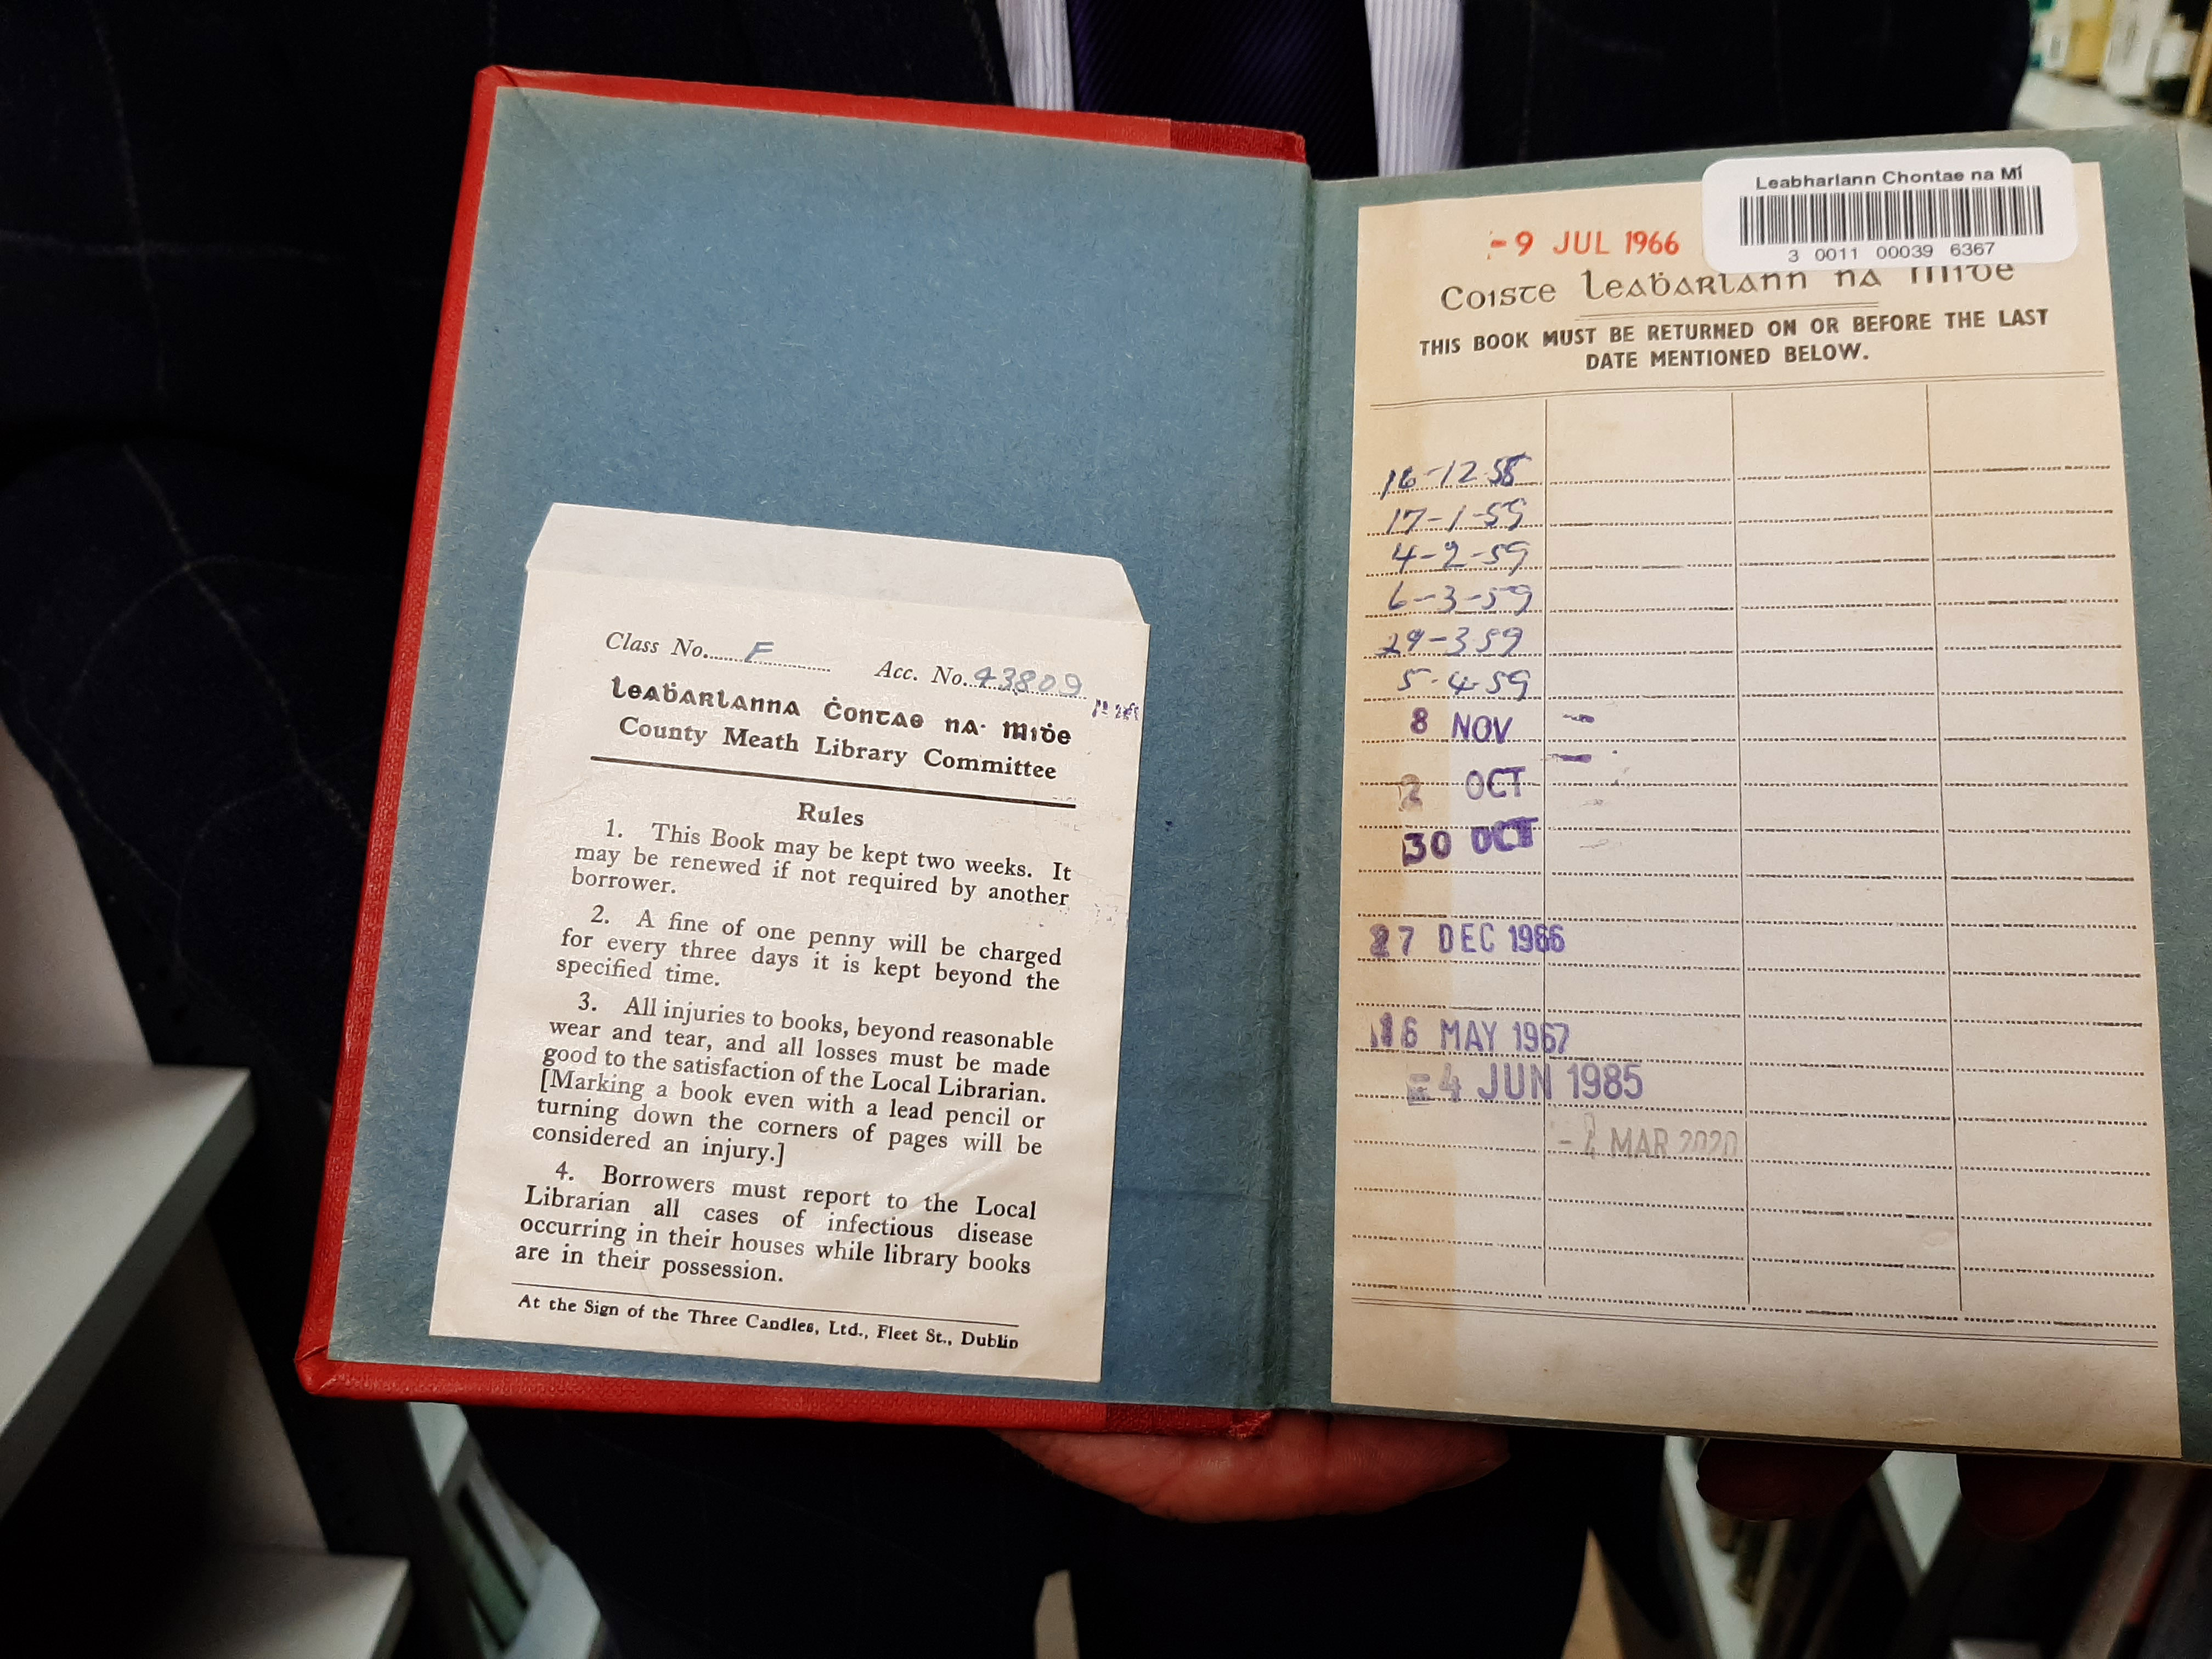 Class No. F Acc. No. 43809
Leaḃarlanna Ċontae na Miḋe
County Meath Library Committee
Rules
1. This Book may be kept two weeks. It
may be renewed if not required by another
borrower.
2. A fine of one penny will be charged
for every three days it is kept beyond the
specified time.
3. All injuries to books, beyond reasonable
wear and tear, and all losses must be made
good to the satisfaction of the Local Librarian.
[Marking a book even with a lead pencil or
turning down the corners of pages will be
considered an injury.]
4. Borrowers must report to the Local
Librarian all cases of infectious disease
occurring in their houses while library books
are in their possession.
At the Sign of the Three Candles, Ltd., Fleet St., Dublin
Leabharlann Chontae na Mí
3 0011 00039 6367
- 9 JUL 1966
Coiste Leaḃarlann na Miḋe
THIS BOOK MUST BE RETURNED ON OR BEFORE THE LAST
DATE MENTIONED BELOW.
16-12-58
17-1-59
4-2-59
6-3-59
29-3-59
5-4-59
8 NOV
2 OCT
30 OCT
27 DEC 1966
16 MAY 1967
-4 JUN 1985
MAR 2020